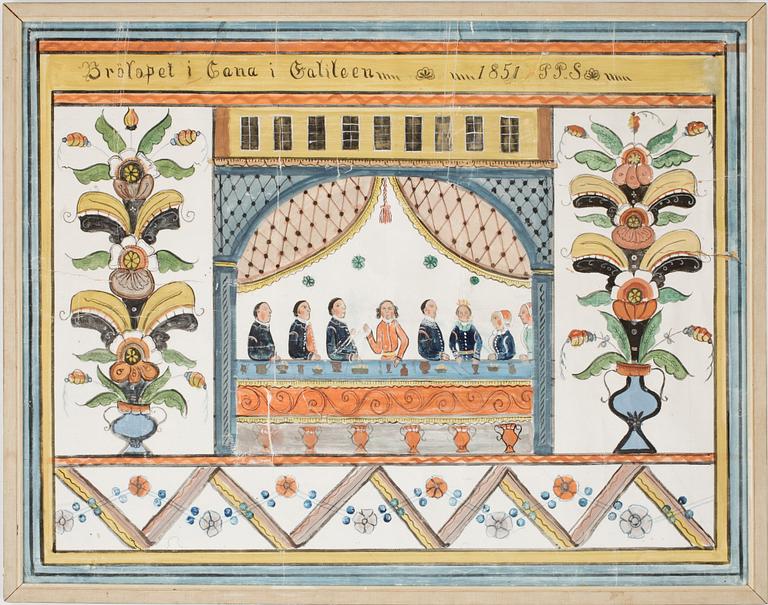 Brölopet i Cana i Galileen 1851 PPS